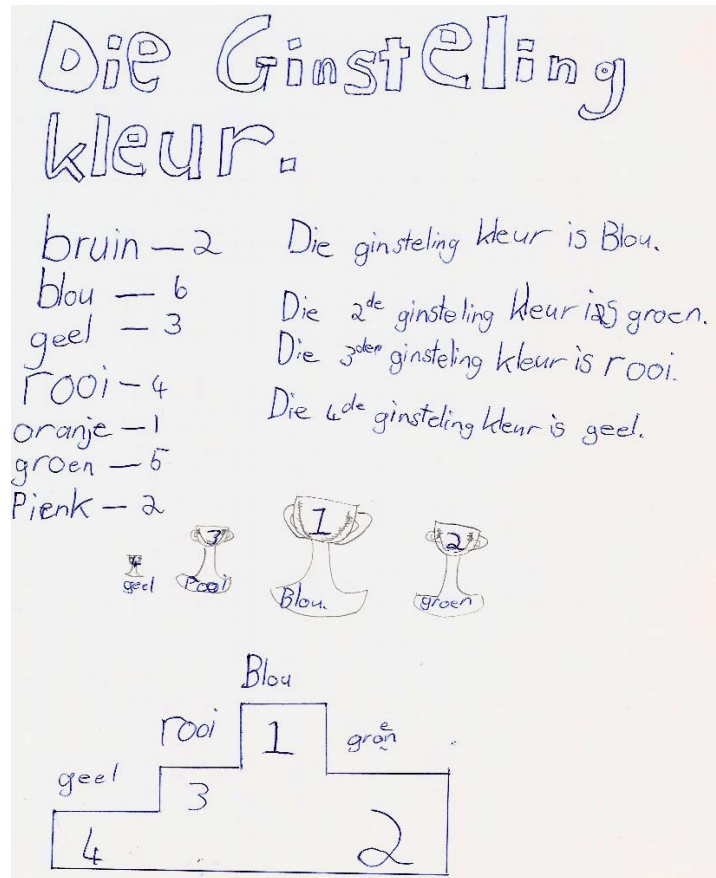 Die Ginsteling
kleur.
bruin — 2
blou — 6
geel — 3
rooi — 4
oranje — 1
groen — 5
Pienk — 2
Die ginsteling kleur is Blou.
Die 2de ginsteling kleur is groen.
Die 3de ginsteling kleur is rooi.
Die 4de ginsteling kleur is geel.
4 3 1 2
geel Rooi Blou. groen
Blou
rooi 1 groen
geel 3
4 2